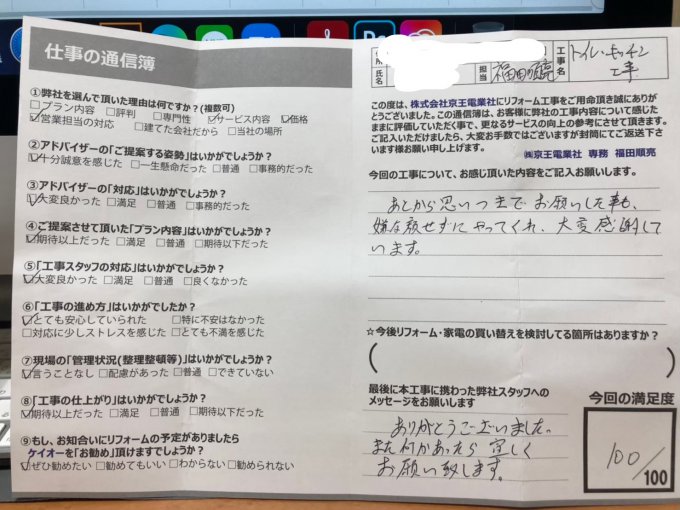 仕事の通信簿
①弊社を選んで頂いた理由は何ですか?(複数可)
□プラン内容 □評判 □専門性 ☑サービス内容 ☑価格
☑営業担当の対応 □建てた会社だから □当社の場所
②アドバイザーの「ご提案する姿勢」はいかがでしょうか?
☑十分誠意を感じた □一生懸命だった □普通 □事務的だった
③アドバイザーの「対応」はいかがでしょうか?
☑大変良かった □満足 □普通 □事務的だった
④ご提案させて頂いた「プラン内容」はいかがでしょうか?
☑期待以上だった □満足 □普通 □期待以下だった
⑤「工事スタッフの対応」はいかがでしょうか?
☑大変良かった □満足 □普通 □良くなかった
⑥「工事の進め方」はいかがでしたか?
☑とても安心していられた □特に不安はなかった
□対応に少しストレスを感じた □とても不満を感じた
⑦現場の「管理状況(整理整頓等)」はいかがでしょうか?
☑言うことなし □配慮があった □普通 □できていない
⑧「工事の仕上がり」はいかがでしょうか?
☑期待以上だった □満足 □普通 □期待以下だった
⑨もし、お知合いにリフォームの予定がありましたら
ケイオーを「お勧め」頂けますでしょうか?
☑ぜひ勧めたい □勧めてもいい □わからない □勧められない
氏名
担当 福田順亮
工事名 トイレ・キッチン
工事
この度は、株式会社京王電業社にリフォーム工事をご用命頂き誠にありが
とうございました。この通信簿は、お客様に弊社の工事内容について感じた
ままに評価していただく事で、更なるサービスの向上の参考にさせて頂きます。
ご記入いただけましたら、大変お手数ではございますが封筒にてご返送下さ
います様お願い申し上げます。
㈱京王電業社 専務 福田順亮
今回の工事について、お感じ頂いた内容をご記入お願いします。
あとから思いつきでお願いした事も、
嫌な顔せずにやってくれ、大変感謝して
います。
☆今後リフォーム・家電の買い替えを検討してる箇所はありますか?
( )
最後に本工事に携わった弊社スタッフへの
メッセージをお願いします
ありがとうございました。
また何かあったら宜しく
お願い致します。
今回の満足度
100/
/100